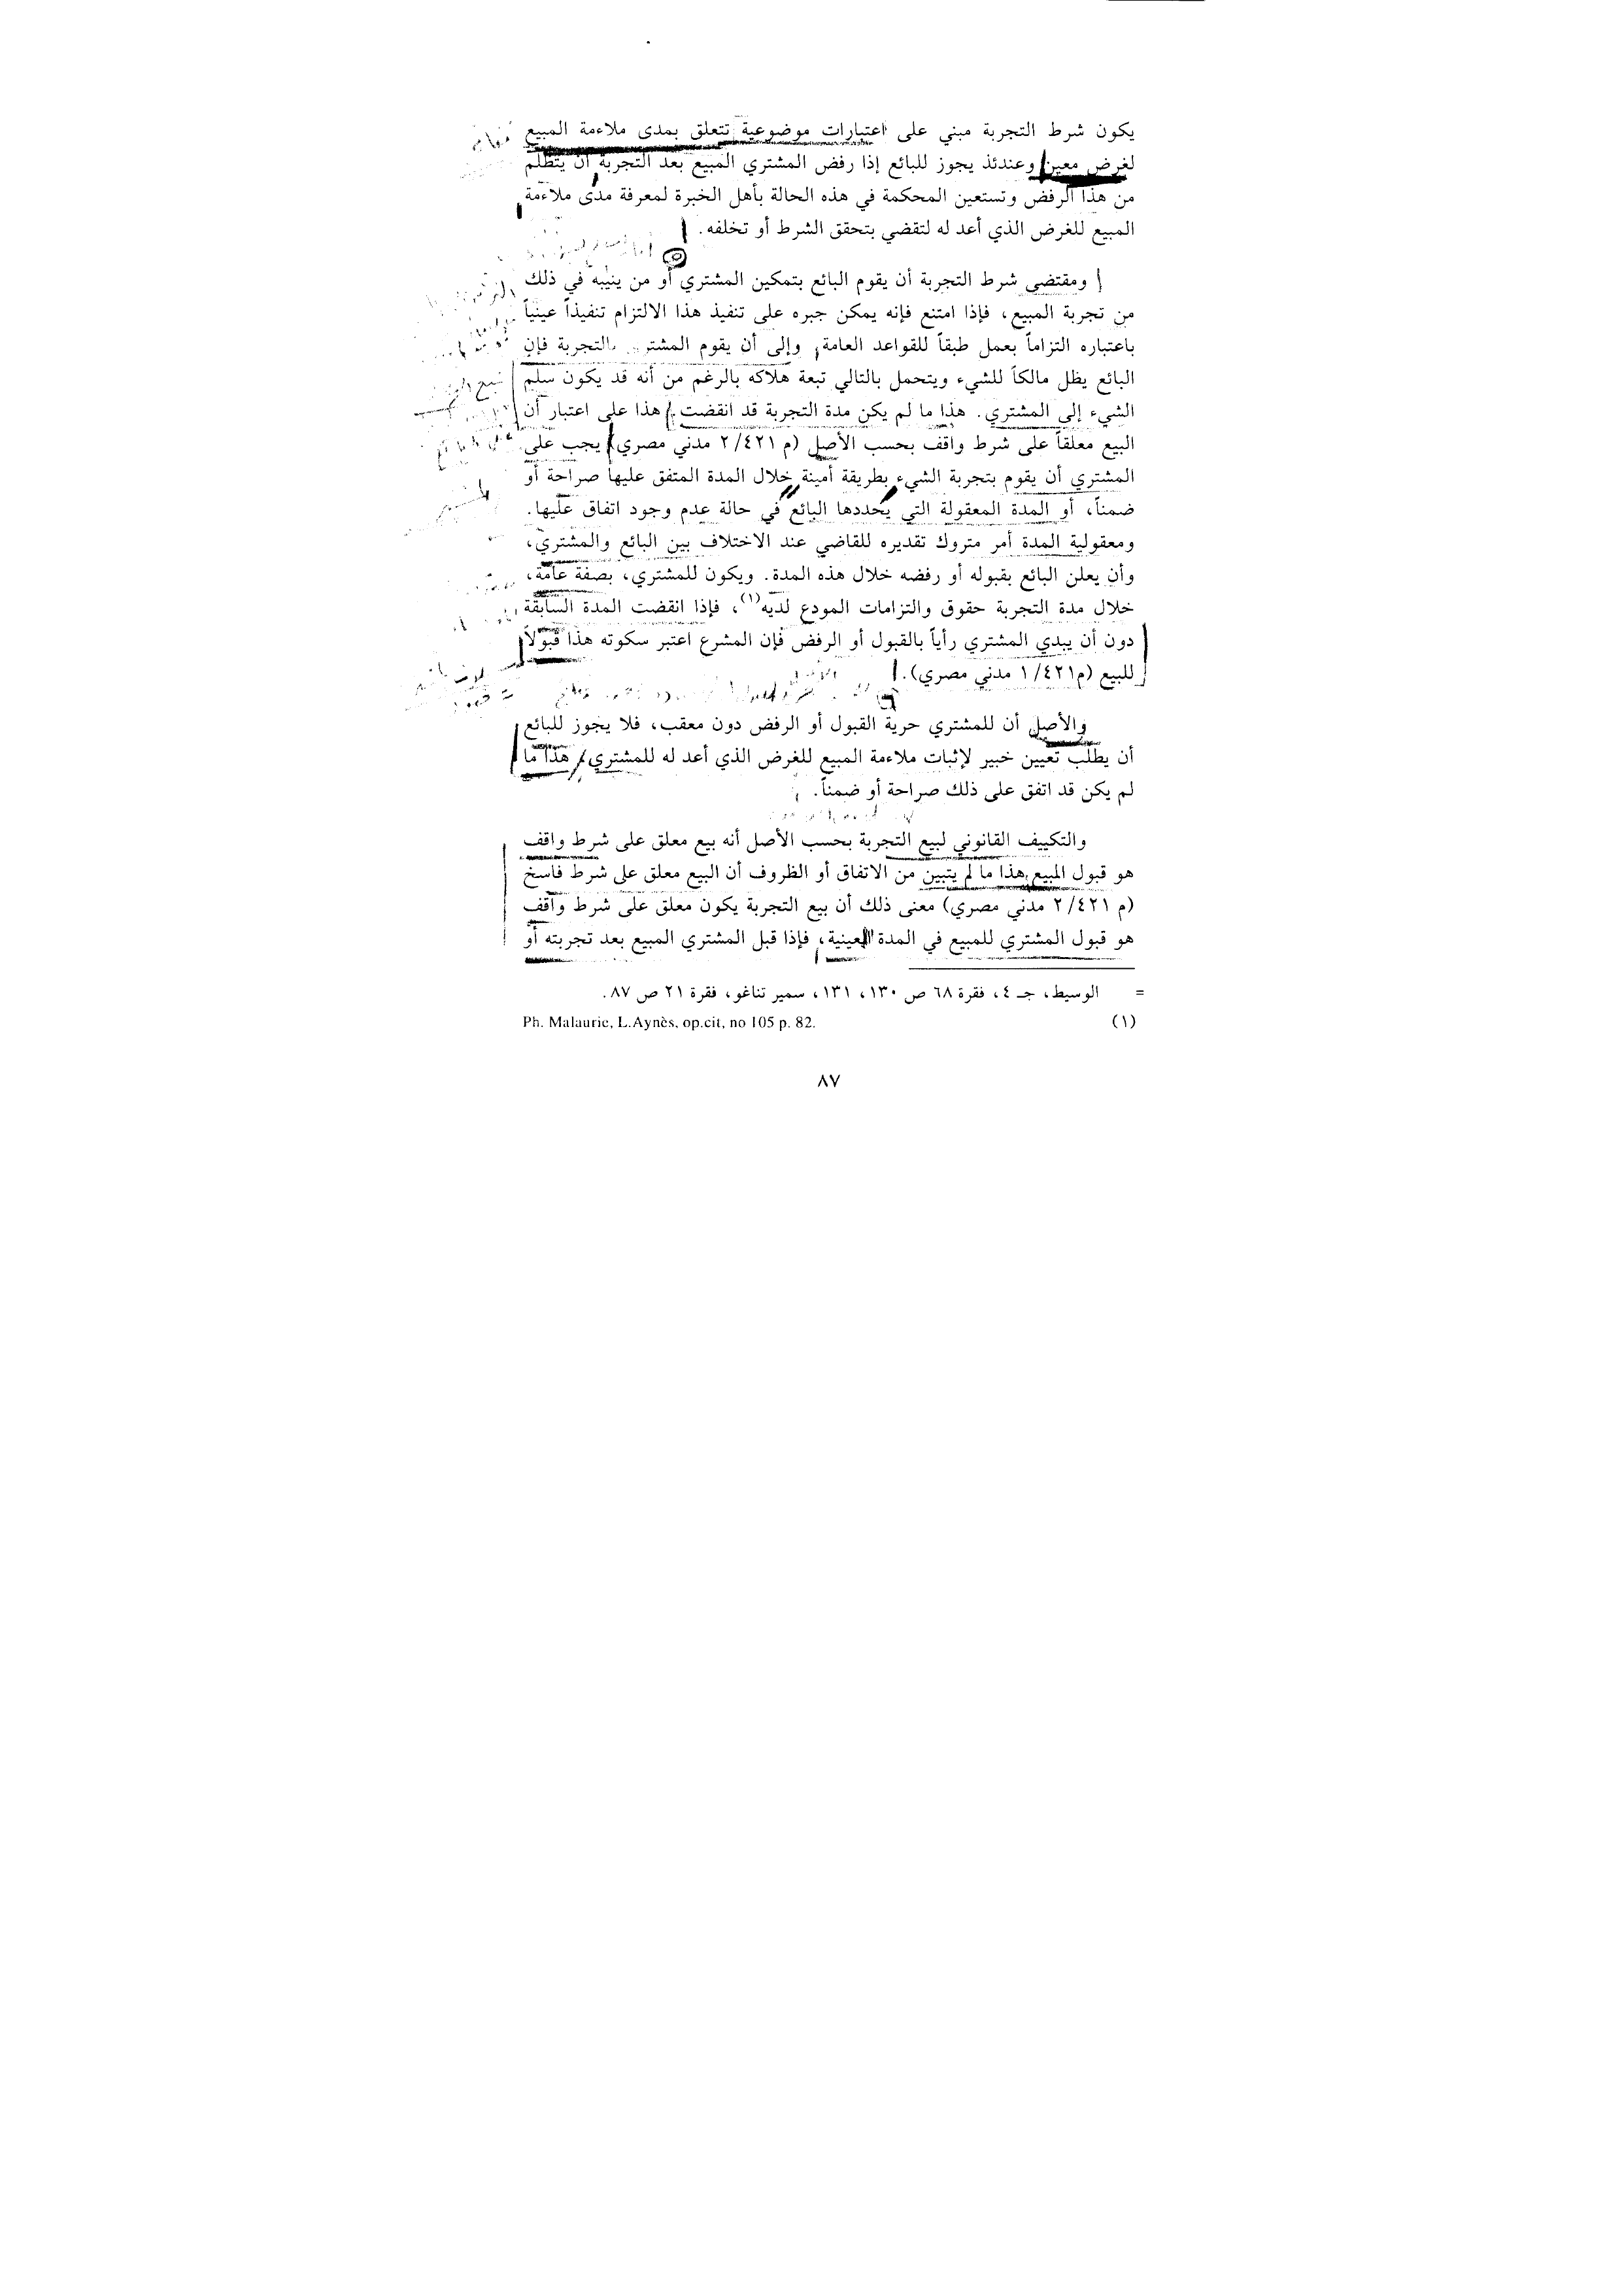 يكون شرط التجربة مبني على اعتبارات موضوعية تتعلق بمدى ملاءمة المبيع
لغرض معين وعندئذ يجوز للبائع إذا رفض المشتري المبيع بعد التجربة أن يتظلم
من هذا الرفض وتستعين المحكمة في هذه الحالة بأهل الخبرة لمعرفة مدى ملاءمة
المبيع للغرض الذي أعد له لتقضي بتحقق الشرط أو تخلفه.
ومقتضى شرط التجربة أن يقوم البائع بتمكين المشتري أو من ينيبه في ذلك
من تجربة المبيع، فإذا امتنع فإنه يمكن جبره على تنفيذ هذا الالتزام تنفيذاً عينياً
باعتباره التزاماً بعمل طبقاً للقواعد العامة، وإلى أن يقوم المشتري بالتجربة فإن
البائع يظل مالكاً للشيء ويتحمل بالتالي تبعة هلاكه بالرغم من أنه قد يكون سلم
الشيء إلى المشتري. هذا ما لم يكن مدة التجربة قد انقضت. هذا على اعتبار أن
البيع معلقاً على شرط واقف بحسب الأصل (م ٤٢١/ ٢ مدني مصري) يجب على
المشتري أن يقوم بتجربة الشيء بطريقة أمينة خلال المدة المتفق عليها صراحة أو
ضمناً، أو المدة المعقولة التي يحددها البائع في حالة عدم وجود اتفاق عليها.
ومعقولية المدة أمر متروك تقديره للقاضي عند الاختلاف بين البائع والمشتري،
وأن يعلن البائع بقبوله أو رفضه خلال هذه المدة. ويكون للمشتري، بصفة عامة،
خلال مدة التجربة حقوق والتزامات المودع لديه(١)، فإذا انقضت المدة السابقة
دون أن يبدي المشتري رأياً بالقبول أو الرفض فإن المشرع اعتبر سكوته هذا قبولاً
للبيع (م٤٢١/ ١ مدني مصري).
والأصل أن للمشتري حرية القبول أو الرفض دون معقب، فلا يجوز للبائع
أن يطلب تعيين خبير لإثبات ملاءمة المبيع للغرض الذي أعد له للمشتري، هذا ما
لم يكن قد اتفق على ذلك صراحة أو ضمناً.
والتكييف القانوني لبيع التجربة بحسب الأصل أنه بيع معلق على شرط واقف
هو قبول المبيع هذا ما لم يتبين من الاتفاق أو الظروف أن البيع معلق على شرط فاسخ
(م ٤٢١/ ٢ مدني مصري) معنى ذلك أن بيع التجربة يكون معلق على شرط واقف
هو قبول المشتري للمبيع في المدة العينية، فإذا قبل المشتري المبيع بعد تجربته أو
= الوسيط، جـ ٤، فقرة ٦٨ ص ١٣٠، ١٣١، سمير تناغو، فقرة ٢١ ص ٨٧.
(١) Ph. Malaurie, L.Aynès, op.cit, no 105 p. 82.
٨٧